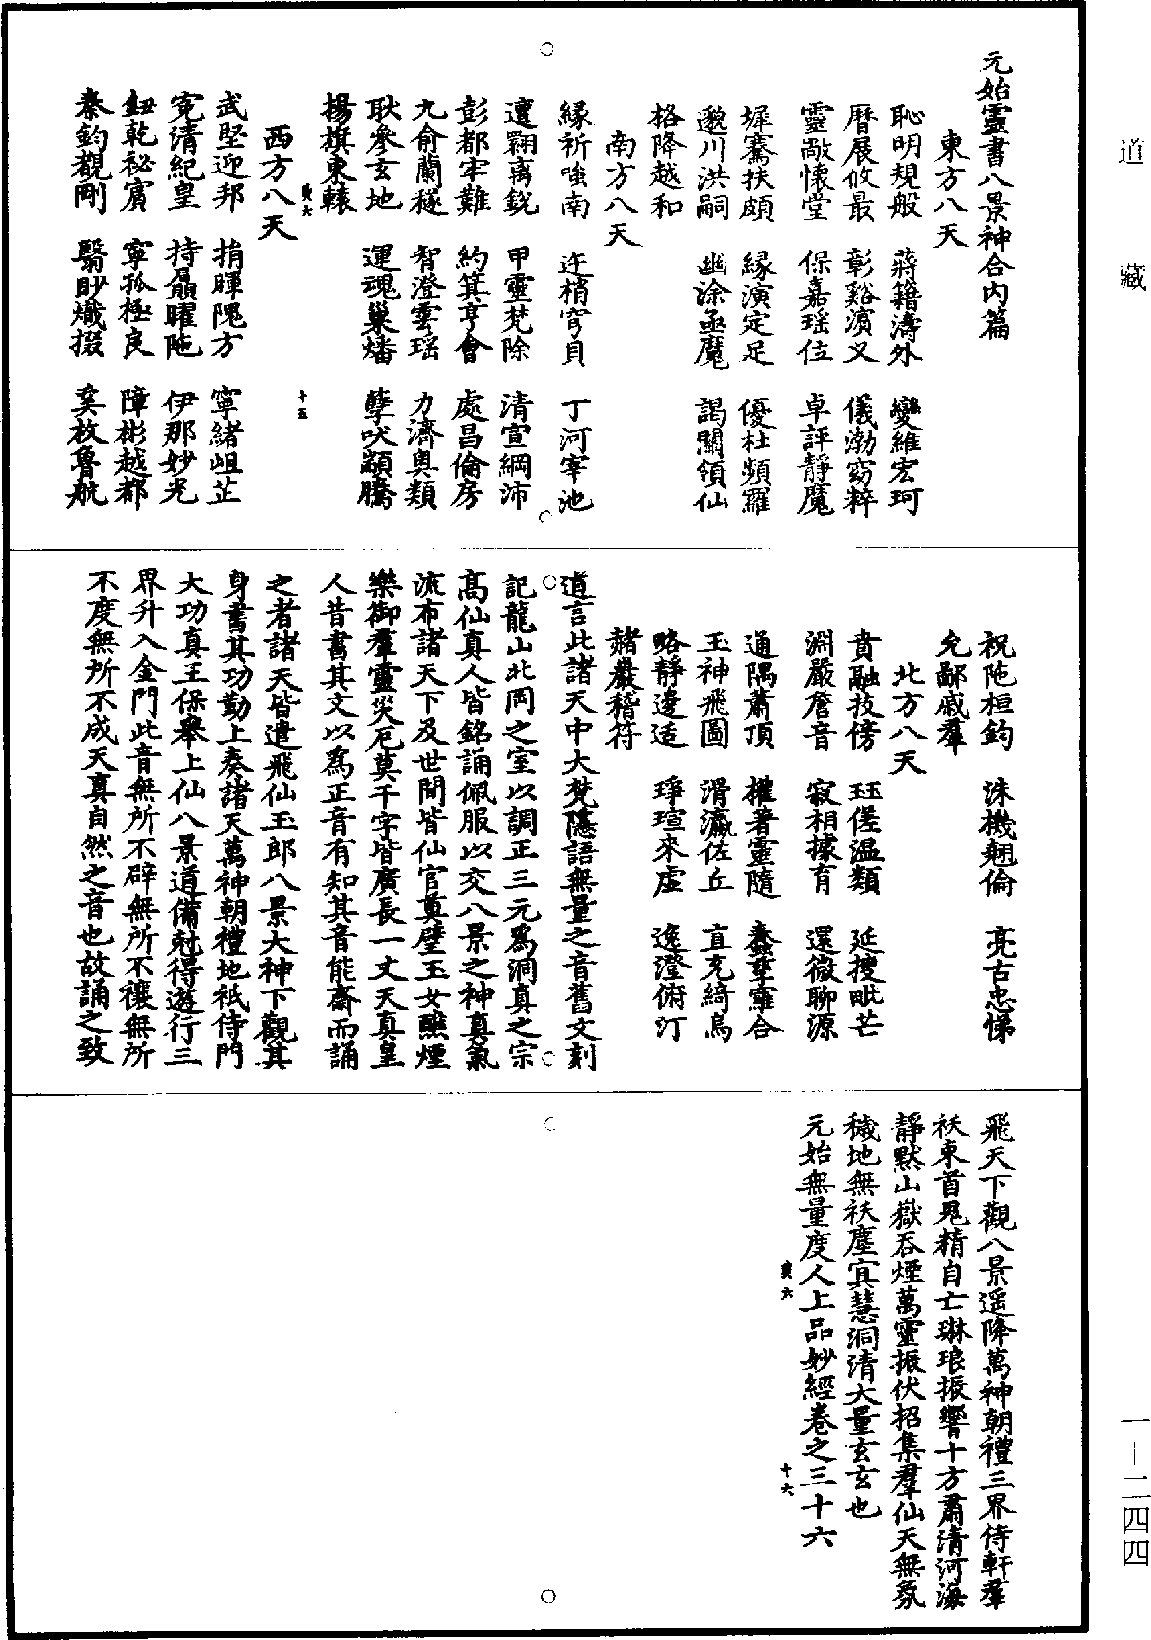 元始靈書八景神合內篇
東方八天
恥明規般　蔣籍濤外　變維宏珂
曆展攸最　彰谿濵义　儀渤窈粹
靈敞懷堂　保嘉瑶位　卓評靜魔
墀騫扶頗　緣演定足　優杜頻羅
邈川洪嗣　幽涂亟魔　謁關領仙
格降越和
南方八天
緣祈嗤南　迕梢穹貝　丁河宰池
邅翾禹銳　甲靈梵除　清宣綱沛
彭都牢難　約箕亨會　處昌倫房
亢俞蘭穟　智澄雲瑶　力濟奥類
耿參玄地　運魂巢燔　孽吠顓騰
揚旗東轅
西方八天
武堅迎邦　捐暉隗方　寧緒岨芷
寃清紀皇　持贔曜陁　伊那妙光
鈕乾祕賔　寧孤極良　障彬越都
秦鈞觀剛　翳眇熾掇　奚放魯航
祝陁桓鈞　洙機翹倫　亮古忠悌
允鄙戚羣
北方八天
賁融技傍　珏偯温類　延搜毗芒
淵嚴詹音　寂相據有　還微聊源
通隅蕭頂　權著靈隨　蠡垂羅合
玉神飛圖　滑瀛佐丘　直充綺烏
略靜邊适　琤瑄來虛　逸澄俯汀
赭嚴稽符
道言此諸天中大梵隱語無量之音舊文刻
記龍山北岡之室以調正三元爲洞真之宗
高仙真人皆銘誦佩服以交八景之神真氣
流布諸天下及世間皆仙官奠璧玉女醮煙
樂御羣靈災厄莫干字皆廣長一丈天真皇
人昔書其文以爲正音有知其音能齋而誦
之者諸天皆遣飛仙玉郎八景大神下觀其
身書其功勤上奏諸天萬神朝禮地祇侍門
大功真王保舉上仙八景道備尅得遊行三
界升入金門此音無所不辟無所不禳無所
不度無所不成天真自然之音也故誦之致
飛天下觀八景遥降萬神朝禮三界侍軒羣
袄東首鬼精自亡琳琅振響十方肅清河海
靜默山嶽吞煙萬靈振伏招集羣仙天無氛
穢地無袄塵冥慧洞清大量玄玄也
元始無量度人上品妙經卷之三十六
寅六
十五
寅六
十六
道藏
一—二四四